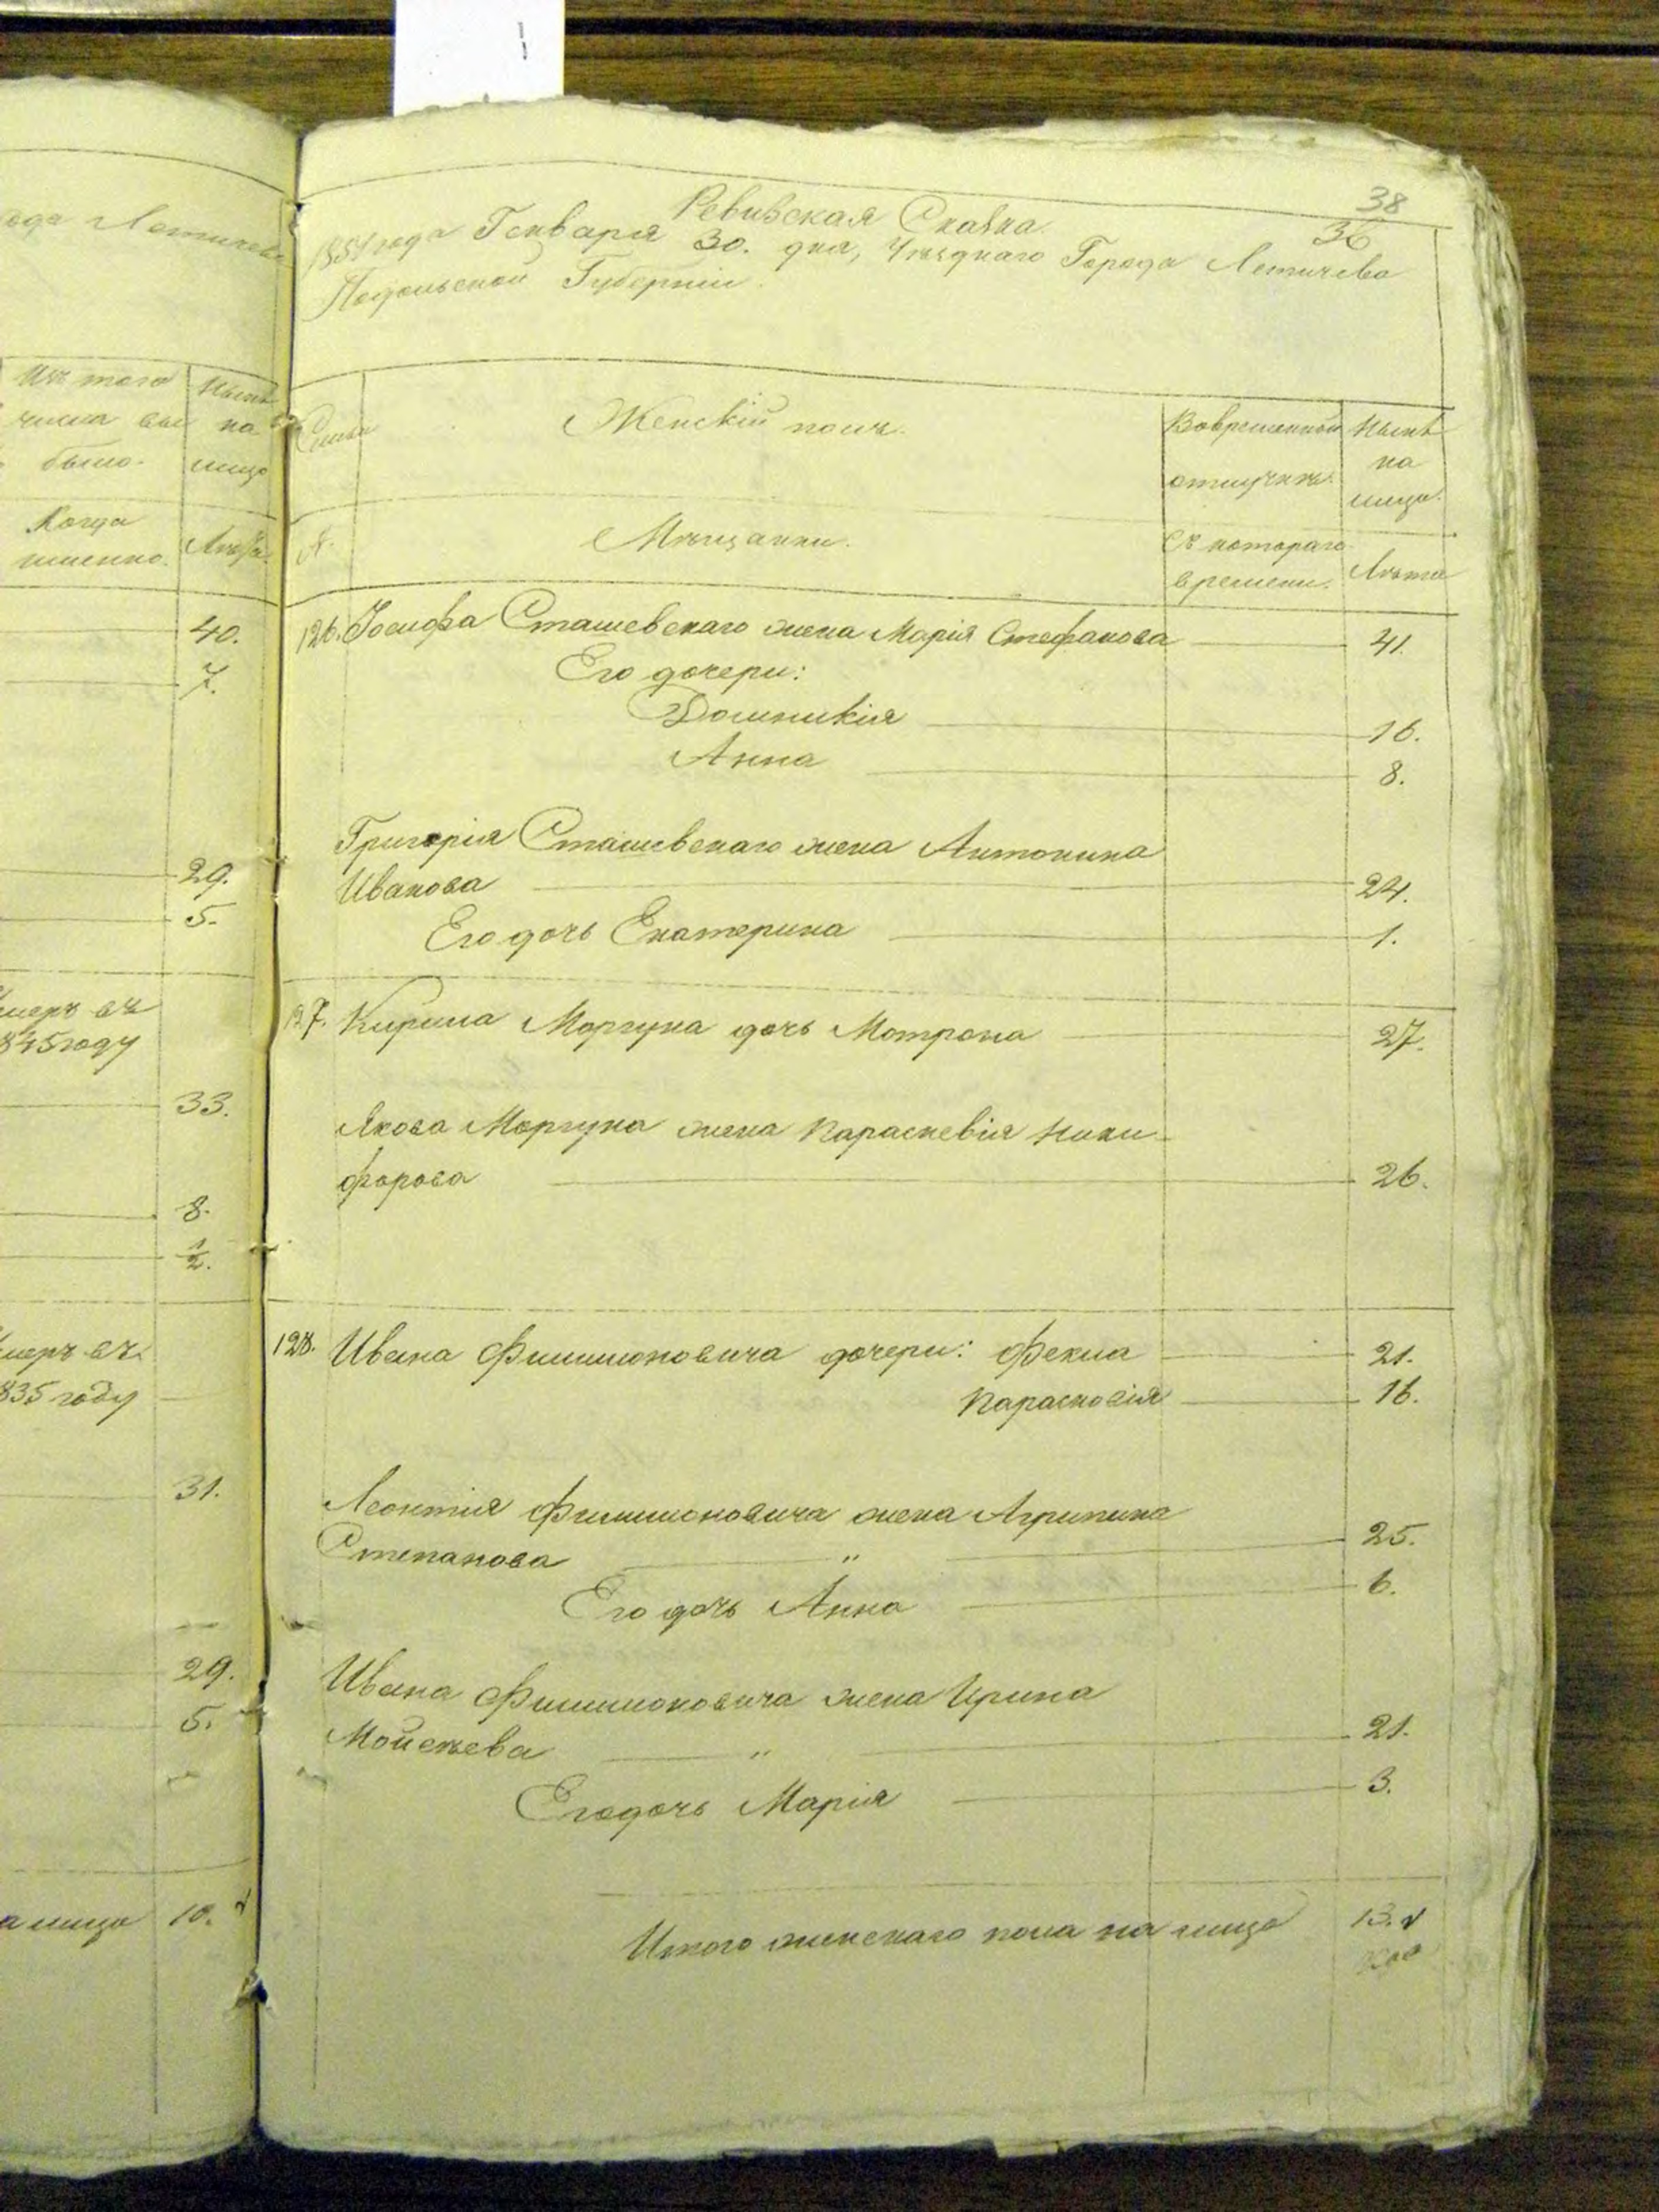 ода Летичева
Изъ того
числа вы
было.
Когда
именно.
Нынѣ
на
лицо
Лѣта
40.
7.
29.
5.
умеръ въ
845 году
33.
8.
1/2.
умеръ въ
835 году
31.
29.
5.
а лицо 10.
38
36
Ревизская Сказка
1851 года Генваря 30. дня, Уѣзднаго Города Летичева
Подольской Губерніи.
Семьи
Женскій полъ.
Вовременной
отлучкѣ.
Нынѣ
на
лицо.
№.
Мѣщанки.
Съ котораго
времени.
Лѣта
126. Іосифа Сташевскаго жена Марія Стефанова 41.
Его дочери:
Домникія 16.
Анна 8.
Григорія Сташевскаго жена Антонина
Иванова 24.
Его дочь Екатерина 1.
127. Кирила Моргуна дочь Мотрона 27.
Якова Моргуна жена Параскевія Ники-
форова 26.
128. Ивана Филимоновича дочери: Фекла 21.
Парасковія 16.
Леонтія Филимоновича жена Агрипина
Степанова " 25.
Его дочь Анна 6.
Ивана Филимоновича жена Ирина
Мойсѣева " 21.
Его дочь Марія 3.
Итого женскаго пола на лицо 13.